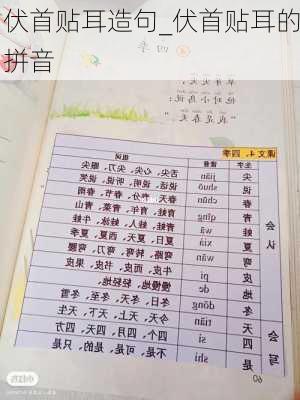 伏首贴耳造句_伏首贴耳的
拼音
4 四季
草芽尖尖，
他对小鸟说：
“我是春天。”
课文 4、四季
生字 读音 组词
会认
尖 jiān 舌尖、心尖、刀尖、眼尖
说 shuō 说话、说明、听说、说笑
春 chūn 春天、春分、春节、春雨
青 qīng 青蛙、青年、青草、青山
蛙 wā 青蛙、蛙人、蛙泳、牛蛙
夏 xià 夏日、夏天、
弯 wān 弯弯、弯转、弯刀、弯腰
皮 pí 牛皮、面皮、书皮、果皮
地 de 慢慢地、轻轻地.
冬 dōng 冬日、冬天、冬至、冬雪
会写
天 tiān 今天、上天、天下、天生
四 sì 四个、四月、四天、四方
是 shì 不是、可是、是的、只是
60
小红书